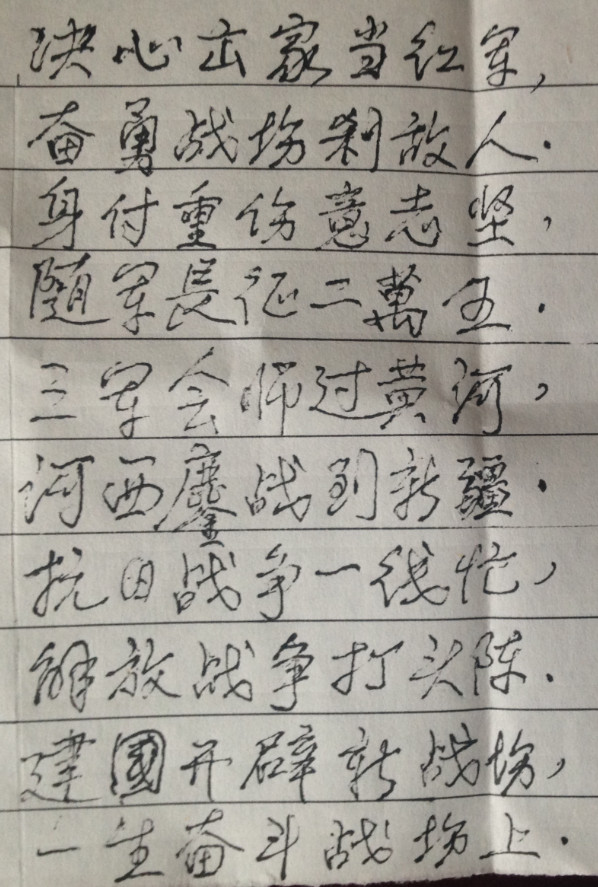 决心出家当红军,
奋勇战场刹敌人.
身付重伤意志坚,
随军長征二萬五.
三军会师过黄河,
河西鏖战到新疆.
抗日战争一线忙,
解放战争打头阵.
建國开辟新战场,
一生奋斗战场上.